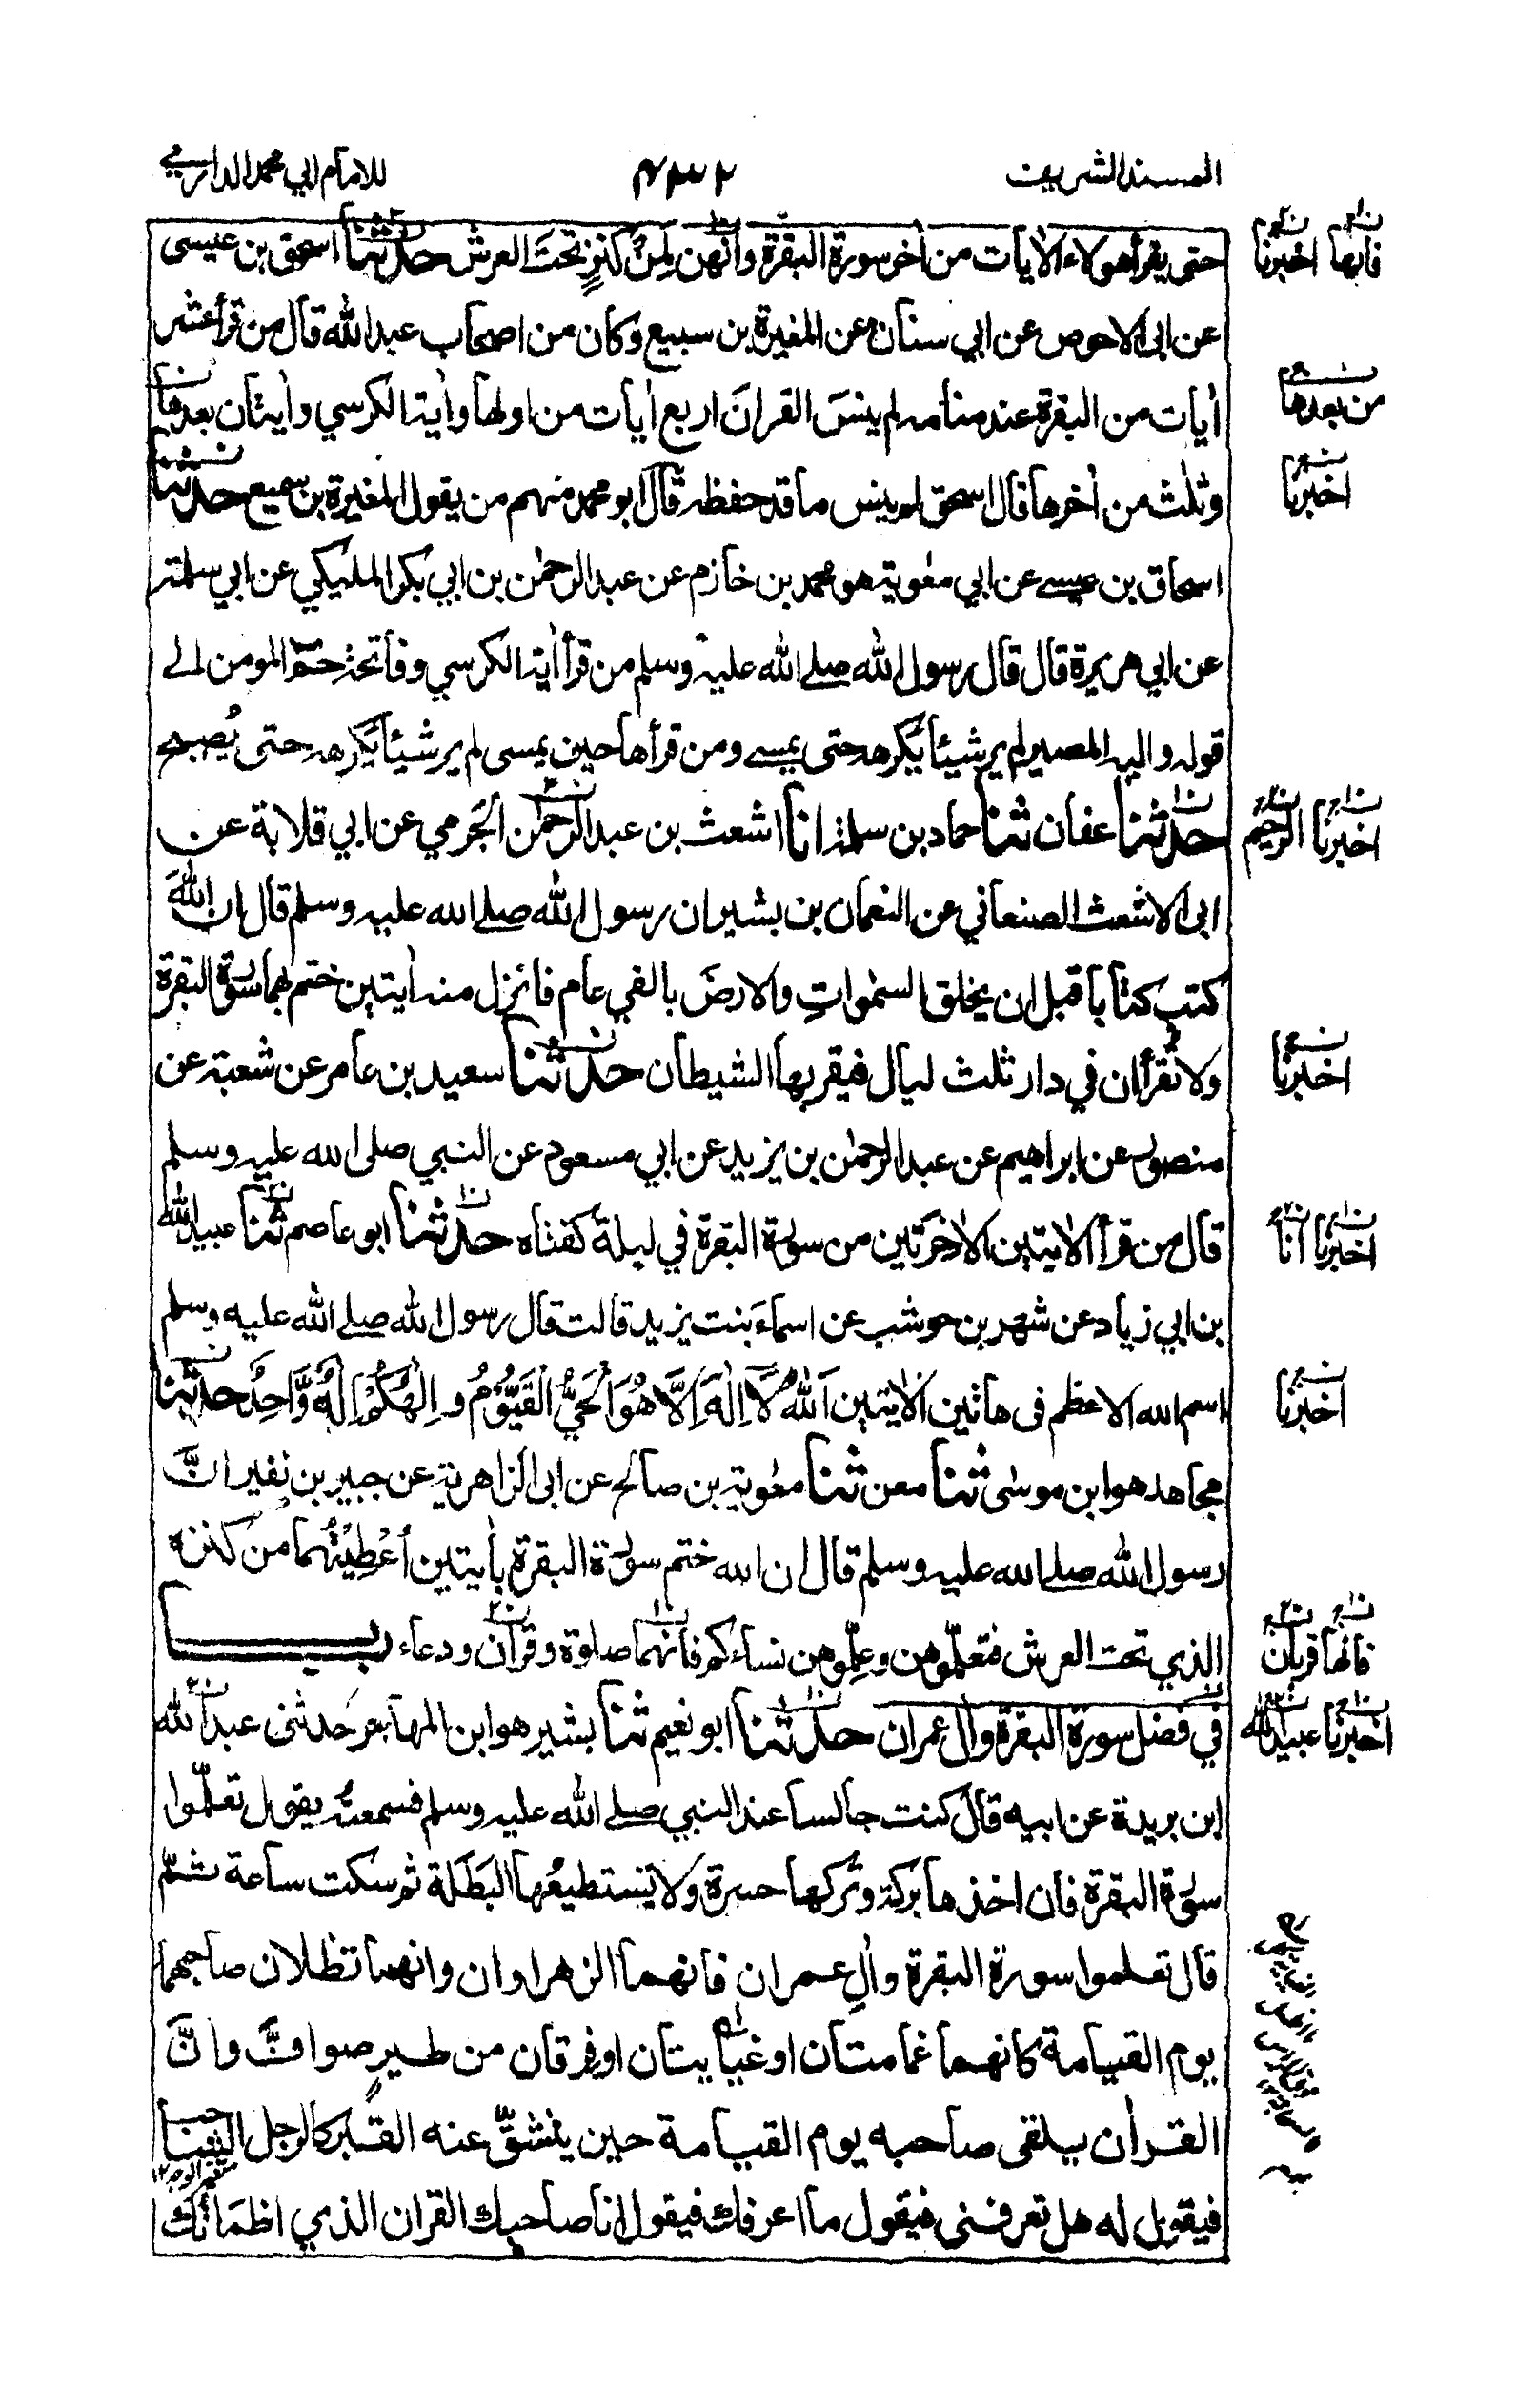 المسند الشريف
للامام ابي محمد الدارمي
حتى يقرأ هولاء الاٰيات من اٰخر سورة البقرة وانهن لمن كنزٍ تحتَ العرش حدثنا اسحق بن عيسى
عن ابي الاحوص عن ابي سنان عن المغيرة بن سبيع وكان من اصحاب عبد الله قال من قرأ عشر
اٰيات من البقرة عند منامه لم ينسَ القراٰنَ اربع اٰيات من اولها واٰية الكرسي واٰيتان بعدها
وثلٰث من اٰخرها قال اسحق لم ينس ما قد حفظه قال ابو محمد منهم من يقول المغيرة بن سميع حدثنا
اسحاق بن عيسے عن ابي معٰوية هو محمد بن خازم عن عبد الرحمٰن بن ابي بكر المليكي عن ابي سلمة
عن ابي هريرة قال قال رسول الله صلے الله عليه وسلم من قرأ اٰية الكرسي وفاتحة حٰم المومن الے
قوله واليه المصير لم ير شيئا يكرهه حتى يمسے ومن قرأها حين يمسى لم ير شيئا يكرهه حتى يُصبح
حدثنا عفان ثنا حماد بن سلمة انا اشعث بن عبد الرحمٰن الجَرمي عن ابي قلابة عن
ابي الاشعث الصنعاني عن النعمان بن بشير ان رسول الله صلے الله عليه وسلم قال ان اللهَ
كتب كتابا قبل ان يخلق السمٰواتِ والارضَ بالفي عام فانزل منه اٰيتين ختم بهما سورة البقرة
ولا تُقرأان في دار ثلٰث ليال فيقربها الشيطان حدثنا سعيد بن عامر عن شعبة عن
منصور عن ابراهيم عن عبد الرحمٰن بن يزيد عن ابي مسعود عن النبي صلى الله عليه وسلم
قال من قرأ الاٰيتين الاٰخرتين من سورة البقرة في ليلة كفتاه حدثنا ابو عاصم ثنا عبيد الله
بن ابي زياد عن شهر بن حوشب عن اسماءَ بنت يزيد قالت قال رسول الله صلے الله عليه وسلم
اسم الله الاعظم فى هاتين الاٰيتين اَللّٰهُ لَآ اِلٰهَ اِلَّا هُوَ الْحَيُّ الْقَيُّوْمُ و اِلٰهُكُمْ اِلٰهٌ وَّاحِدٌ حدثنا
مجاهد هو ابن موسٰى ثنا معن ثنا معٰوية بن صالح عن ابي الزاهرية عن جبير بن نفير انَّ
رسول الله صلے الله عليه وسلم قال ان الله ختم سورة البقرة باٰيتين اُعْطِيْتُهما من كنزه
الذي تحت العرش فتعلّموهن وعلّموهن نساءكم فانهما صلوة وقراٰن ودعاء بـــــاب
في فضل سورة البقرة واٰل عمران حدثنا ابو نعيم ثنا بشير هو ابن المهاجر حدثنى عبد الله
ابن بريدة عن ابيه قال كنت جالسا عند النبي صلے الله عليه وسلم فسمعتُه يقول تعلّموا
سورة البقرة فان اخذها بركة وتركها حسرة ولا يستطيعُها البَطَلَة ثم سكت ساعة ثمّ
قال تعلموا سورة البقرة واٰلِ عمران فانهما الزهراوان وانهما تظلان صاحبهما
يوم القيامة كانهما غمامتان او غيايتان او فِرقان من طيرٍ صوافَّ وانَّ
القراٰن يلقى صاحبه يوم القيامة حين ينشقّ عنه القبر كالرجل الشاحب
متغير اللون ١٢
فيقول له هل تعرفنى فيقول ما اعرفك فيقول انا صاحبك القراٰن الذي اظمَأتُك
فانها اخبرنا
من بعدها
اخبرنا
اخبرنا الرحيم
اخبرنا
اخبرنا انا
اخبرنا
فانها قربان
اخبرنا عبيد الله